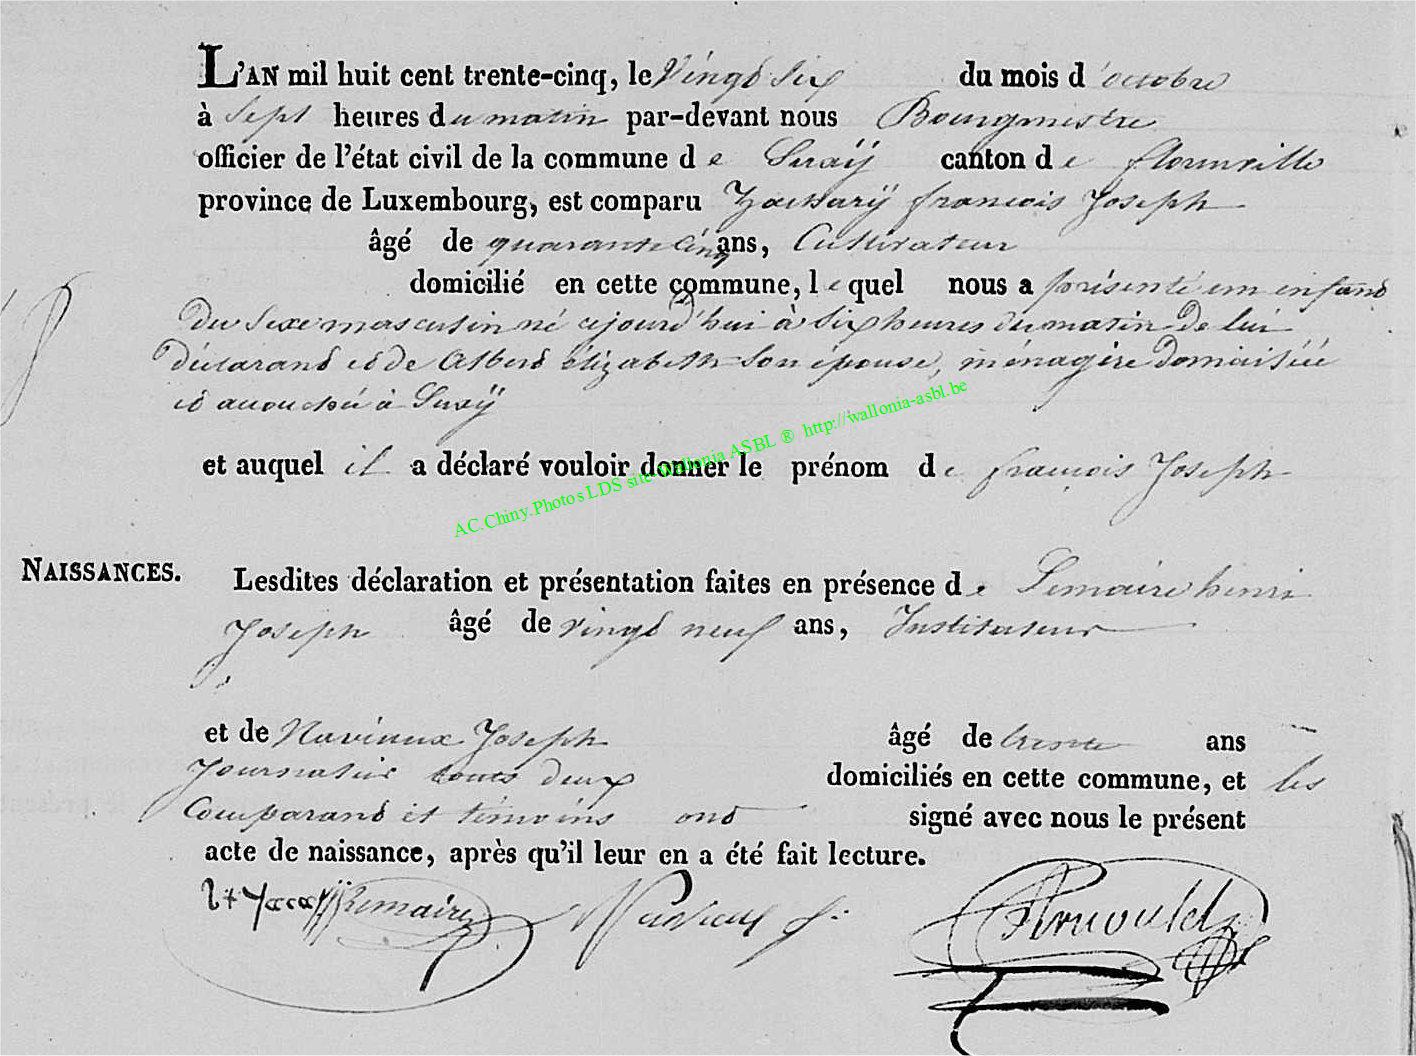 L'AN mil huit cent trente-cinq, le Vingt six du mois d'octobre
à Sept heures du matin par-devant nous Bourgmestre
officier de l'état civil de la commune de Suxÿ canton de florenville
province de Luxembourg, est comparu Zacharÿ francois Joseph
âgé de quarante cinq ans, Cultivateur
domicilié en cette commune, lequel nous a présenté un enfant
du Sexe masculin né cejourd'hui à Six heures du matin de lui
déclarant et de Albert élizabeth Son épouse, ménagère domiciliée
et accouchée à Suxÿ
et auquel il a déclaré vouloir donner le prénom de françois Joseph
AC.Chiny.Photos LDS site Wallonia ASBL ® http://wallonia-asbl.be
NAISSANCES.
Lesdites déclaration et présentation faites en présence de Lemaire henri
Joseph âgé de vingt neuf ans, Instituteur
et de Navieaux Joseph âgé de trente ans
Journalier tous deux domiciliés en cette commune, et les
Comparant et témoins ont signé avec nous le présent
acte de naissance, après qu'il leur en a été fait lecture.
Lemaire Arnould